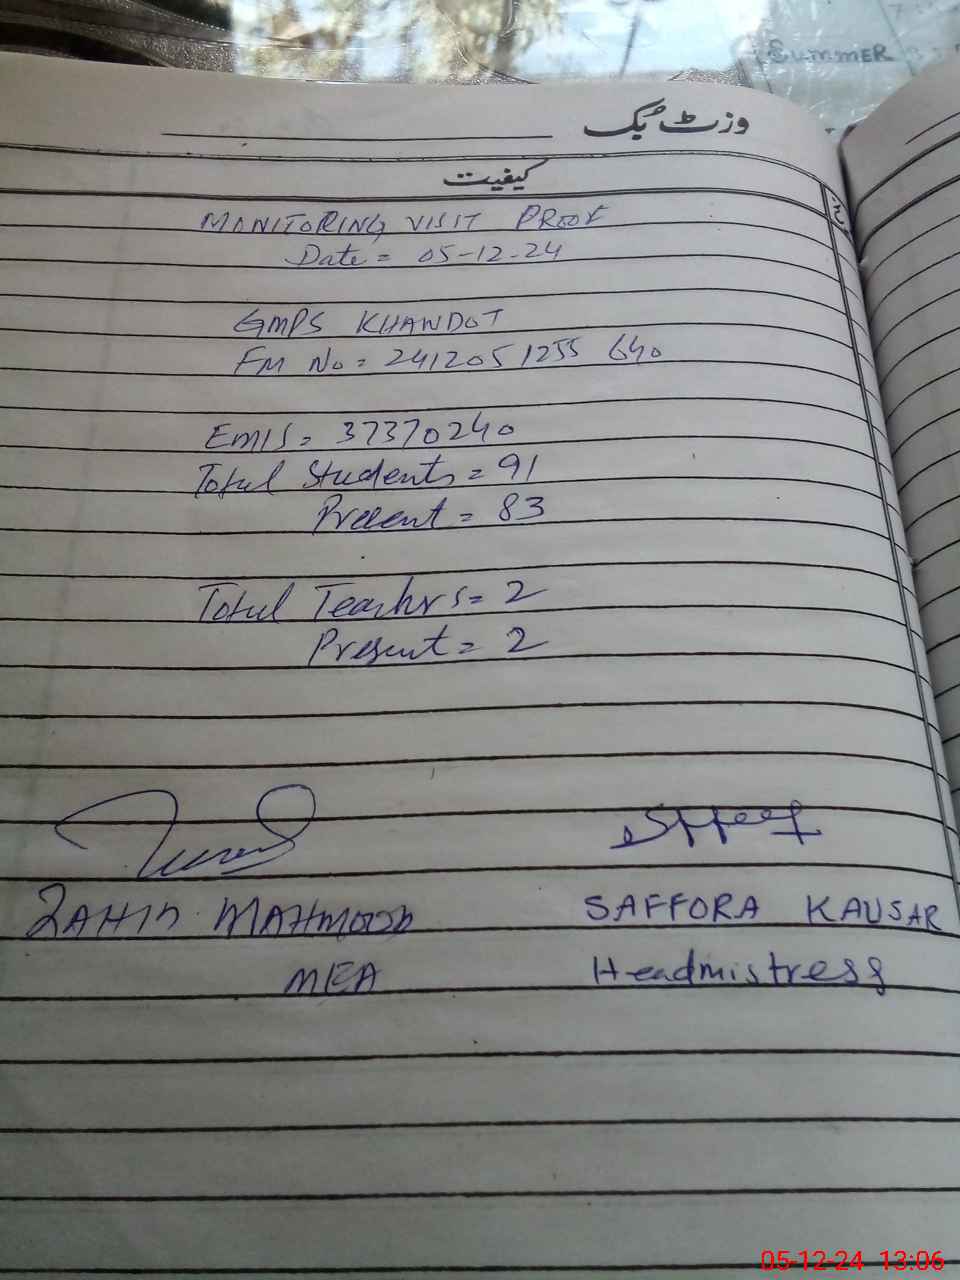 SUMMER
وزٹ بک
کیفیت
MONITORING VISIT PROOF
Date = 05-12-24
GMPS KHANDOT
FM No = 2412051255 640
EMIS = 37370240
Total Students = 91
Present = 83
Total Teachers = 2
Present = 2
ZAHID MAHMOOD SAFFORA KAUSAR
MEA Headmistress
05-12-24 13:06